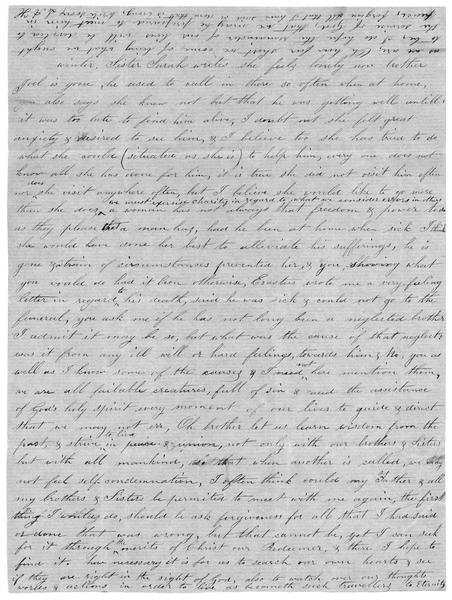 winter, Sister Sarah writes she feels lonely now Brother
Joel is gone, he used to call in there so often when at home,
she also says she knew not but that he was getting well untill
it was too late to find him alive, I doubt not she felt great
anxiety & desired to see him, & I believe too she has tried to do
what she could (situated as she is) to help him, every one does not
know all she has done for him, it is true she did not visit him often
nor does she visit anywhere often, but I believe she would like to go more
than she does, we must exercise charity in regard to what we consider errors in others
a woman has not always that freedom & power to do
as they please that a man has, had he been at home when sick I think
she would have done her best to alleviate his sufferings, he is
gone & a train of circumstances prevented her, & you knowing what
you would do had it been otherwise, Erastus wrote me a very feeling
letter in regard to his death, said he was sick & could not go to the
funeral, you ask me if he has not long been a neglected brother
I admit it may be so, but what was the cause of that neglect,
was it from any ill will or hard feelings, towards him, No, you as
well as I know some of the causes & I need not here mention them,
we are all fallable creatures, full of sin & need the assistance
of God's holy spirit every moment of our lives to guide & direct
that we may not err, Oh brother let us learn wisdom from the
past, & strive to live in peace & union, not only with our brothers & Sisters
but with all mankind, so that when another is called, we may
not feel self condemnation, I often think could my Father & all
my brothers & Sisters be permitted to meet with me again, the first
thing I would do, should be ask forgiveness for all that I had said
or done that was wrong, but that cannot be, yet I can seek
for it through the merits of Christ our Redeemer, & there I hope to
find it, how necessary it is for us to search our own hearts & see
if they are right in the sight of God, also to watch over our thoughts
words & actions in order to live as becometh such travellers to Eternity